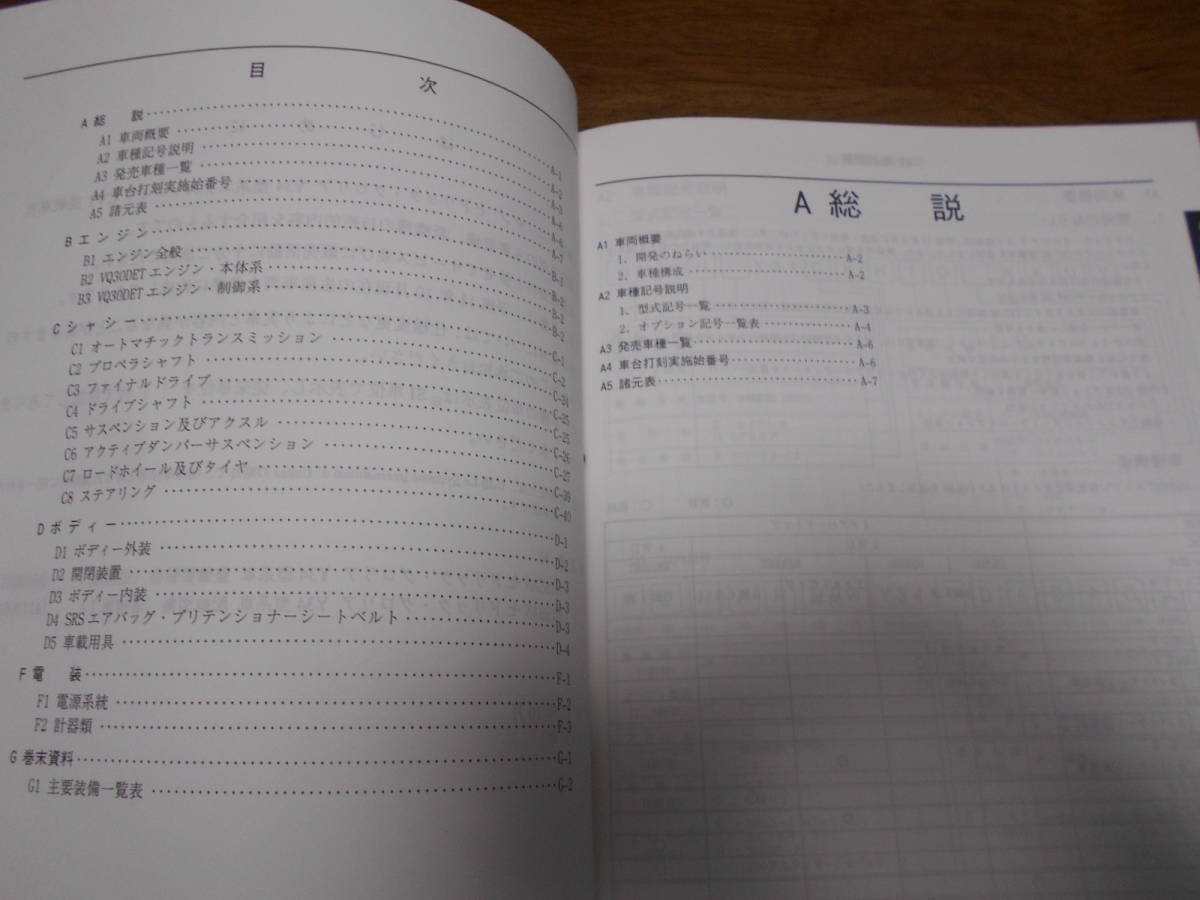 目 次
A 総 説 A-1
A1 車両概要 A-2
A2 車種記号説明 A-3
A3 発売車種一覧 A-6
A4 車台打刻実施始番号 A-6
A5 諸元表 A-7
B エンジン B-1
B1 エンジン全般 B-2
B2 VQ30DETエンジン・本体系 B-2
B3 VQ30DETエンジン・制御系 B-2
C シャシー C-1
C1 オートマチックトランスミッション C-2
C2 プロペラシャフト C-24
C3 ファイナルドライブ C-25
C4 ドライブシャフト C-25
C5 サスペンション及びアクスル C-26
C6 アクティブダンパーサスペンション C-27
C7 ロードホイール及びタイヤ C-39
C8 ステアリング C-40
D ボディー D-1
D1 ボディー外装 D-2
D2 開閉装置 D-3
D3 ボディー内装 D-3
D4 SRSエアバッグ・プリテンショナーシートベルト D-3
D5 車載用具 D-4
F 電 装 F-1
F1 電源系統 F-2
F2 計器類 F-3
G 巻末資料 G-1
G1 主要装備一覧表 G-2
A 総 説
A1 車両概要
1. 開発のねらい A-2
2. 車種構成 A-2
A2 車種記号説明
1. 型式記号一覧 A-3
2. オプション記号一覧表 A-4
A3 発売車種一覧 A-6
A4 車台打刻実施始番号 A-6
A5 諸元表 A-7